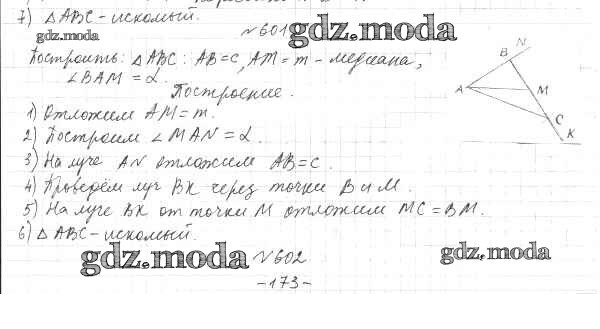 7) △ABC - искомый.
gdz.moda
№601 gdz.moda
Построить: △ABC: AB=c, AM=m - медиана,
∠BAM = α.
Построение.
1) Отложим AM=m.
2) Построим ∠MAN=α.
3) На луче AN отложим AB=c.
4) Проведём луч BK через точки B и M.
5) На луче BK от точки M отложим MC=BM.
6) △ABC - искомый.
B N
A M
C
K
gdz.moda №602 gdz.moda
-173-